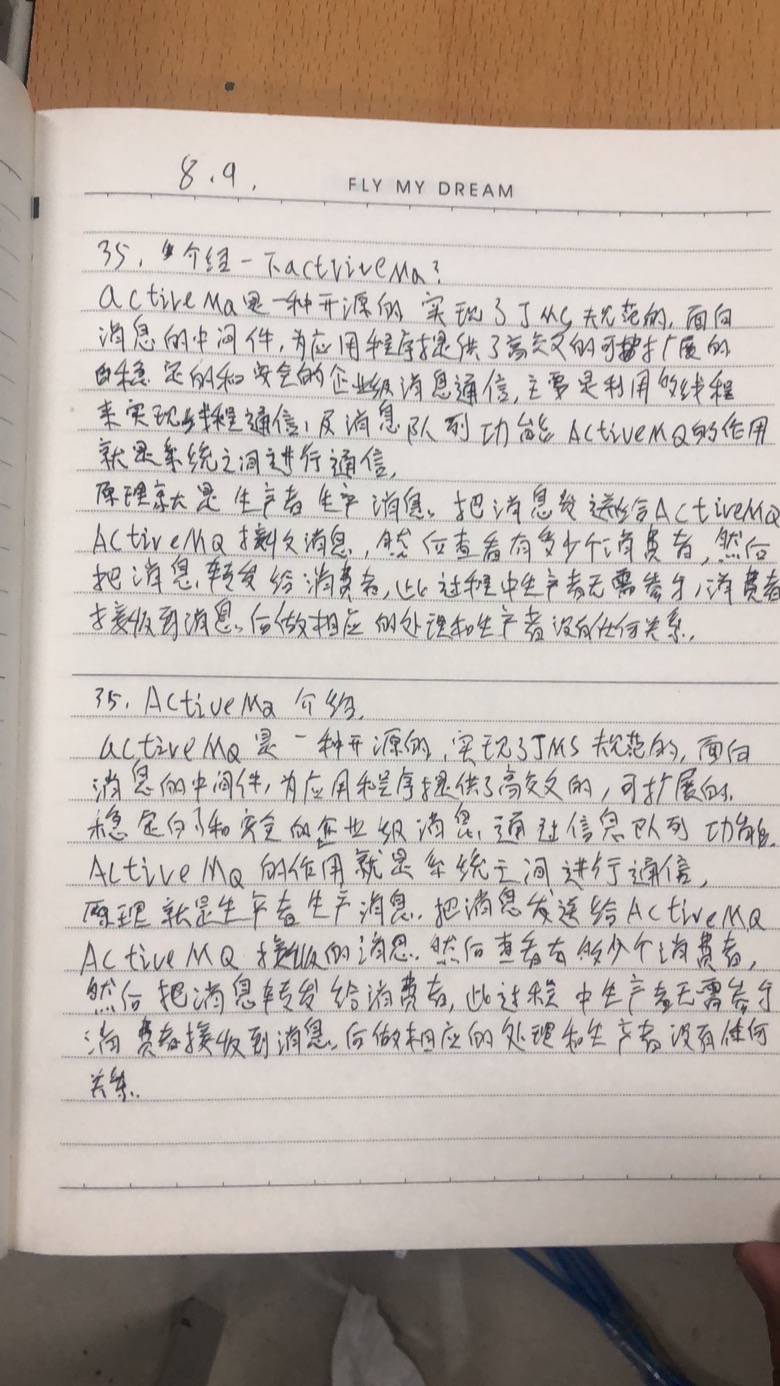 8.9.
FLY MY DREAM
35. 介绍一下actviveMQ?
activeMQ是一种开源的 实现了JMS规范的, 面向
消息的中间件, 为应用程序提供了高效的可扩展的
稳定的和安全的企业级消息通信, 主要是利用的线程
来实现线程通信, 及消息队列功能 ActiveMQ的作用
就是系统之间进行通信,
原理就是生产者生产消息. 把消息发送给ActiveMQ
ActiveMQ接收消息, 然后查看有多少个消费者, 然后
把消息转发给消费者, 此过程中生产者无需参与, 消费者
接收到消息后做相应的处理和生产者没有任何关系.
35. ActiveMQ 介绍.
activeMQ是一种开源的, 实现了JMS规范的, 面向
消息的中间件, 为应用程序提供了高效的, 可扩展的.
稳定的和安全的企业级消息通过信息队列功能.
ActiveMQ的作用就是系统之间进行通信,
原理就是生产者生产消息. 把消息发送给ActiveMQ
ActiveMQ接收的消息. 然后查看有多少个消费者,
然后把消息转发给消费者, 此过程中生产者无需参与
消费者接收到消息后做相应的处理和生产者没有任何
关系.